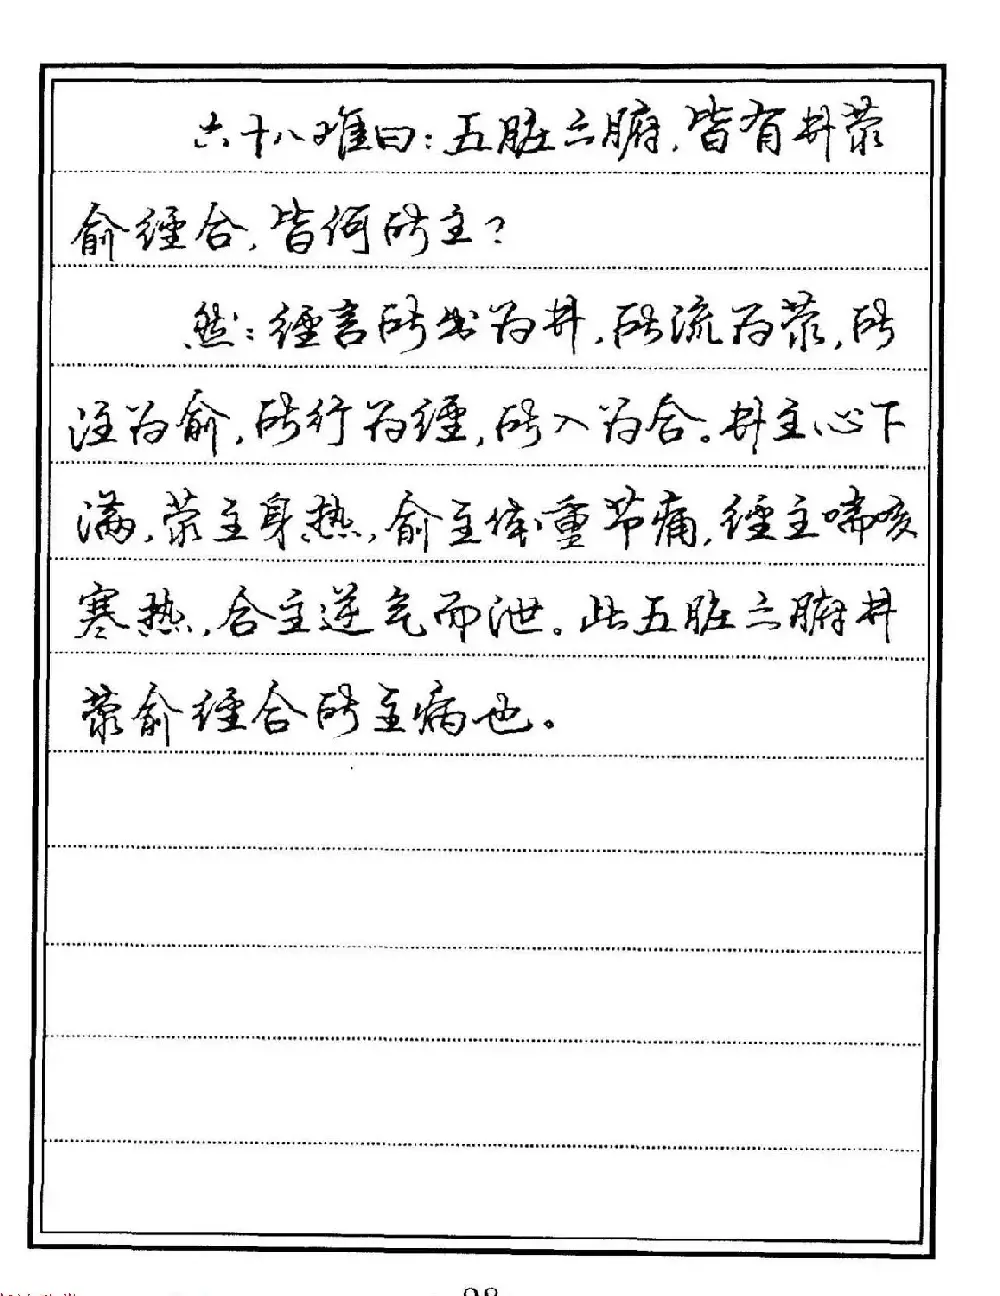 六十八难曰：五脏六腑，皆有井荥
俞经合，皆何所主？
然：经言所出为井，所流为荥，所
注为俞，所行为经，所入为合。井主心下
满，荥主身热，俞主体重节痛，经主喘咳
寒热，合主逆气而泄。此五脏六腑井
荥俞经合所主病也。